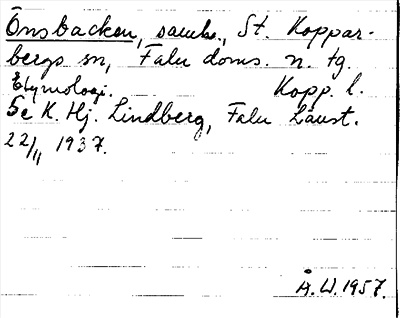 Önsbacken, samhs., St. Koppar-
bergs sn, Falu doms. n. tg.
Etymologi. Kopp. l.
Se K. Hj. Lindberg, Falu Laust.
22/11 1937.
Å. W. 1957.